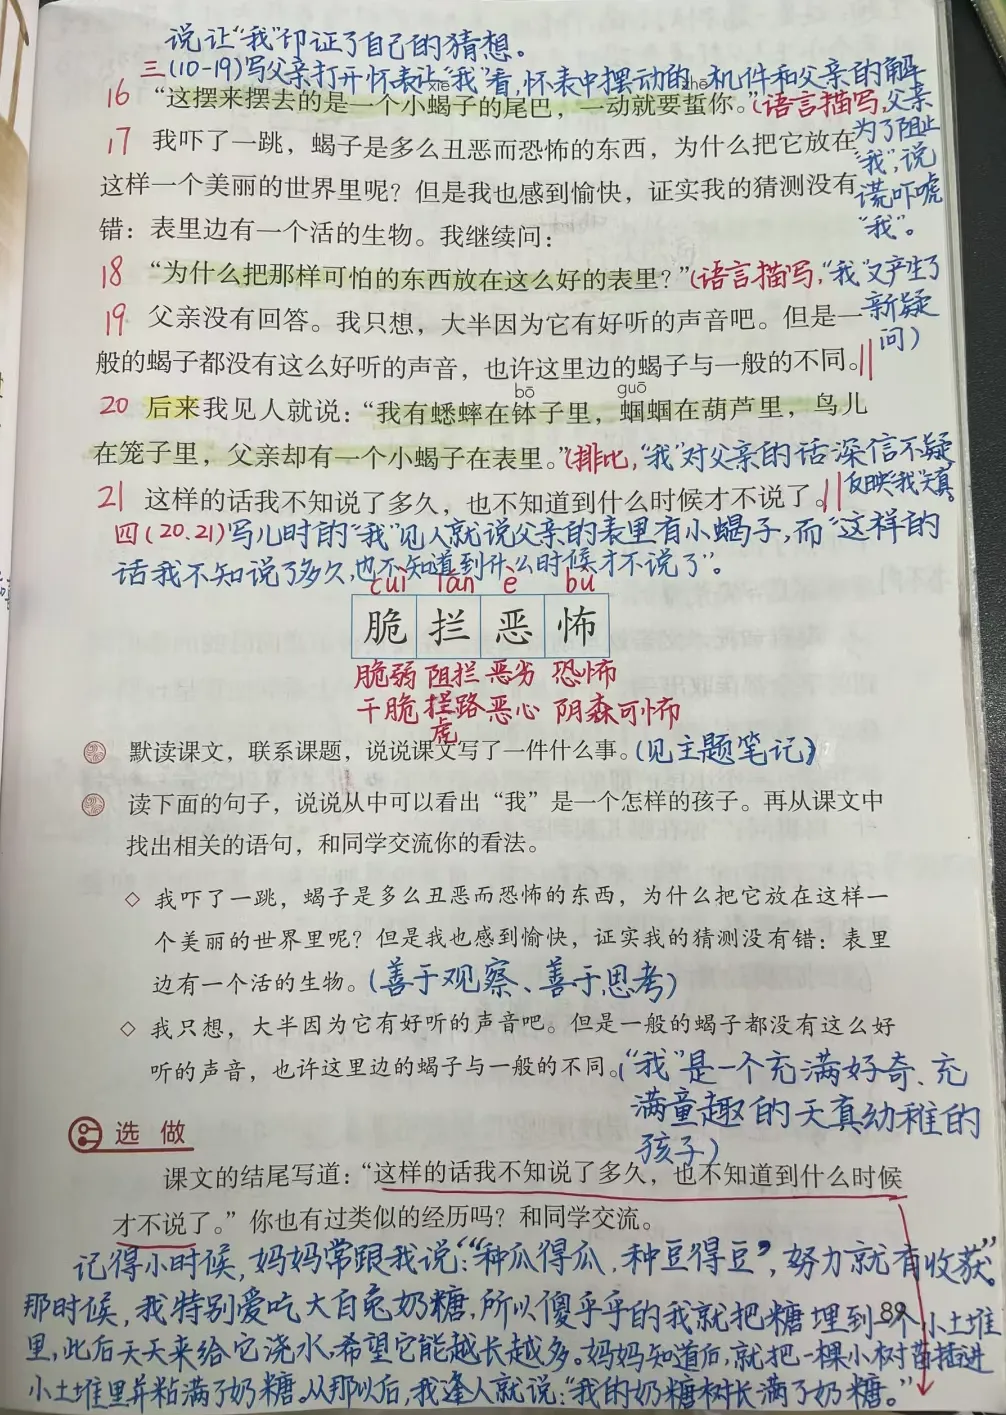 说让“我”印证了自己的猜想。
三(10-19)写父亲打开怀表让“我”看,怀表中摆动的机件和父亲的解
xiē zhē
16 “这摆来摆去的是一个小蝎子的尾巴，一动就要蜇你。”(语言描写,父亲
为了阻止
“我”,说
谎吓唬
“我”。
17 我吓了一跳，蝎子是多么丑恶而恐怖的东西，为什么把它放在
这样一个美丽的世界里呢？但是我也感到愉快，证实我的猜测没有
错：表里边有一个活的生物。我继续问：
18 “为什么把那样可怕的东西放在这么好的表里？”(语言描写,“我”又产生了
新疑
问)
19 父亲没有回答。我只想，大半因为它有好听的声音吧。但是一
般的蝎子都没有这么好听的声音，也许这里边的蝎子与一般的不同。||
bō guō
20 后来我见人就说：“我有蟋蟀在钵子里，蝈蝈在葫芦里，鸟儿
在笼子里，父亲却有一个小蝎子在表里。”(排比,“我”对父亲的话深信不疑
反映“我”天真。
21 这样的话我不知说了多久，也不知道到什么时候才不说了。||
四(20.21)写儿时的“我”见人就说父亲的表里有小蝎子,而“这样的
话我不知说了多久,也不知道到什么时候才不说了”。
cuì lán è bù
脆 拦 恶 怖
脆弱 阻拦 恶劣 恐怖
干脆 拦路虎 恶心 阴森可怖
默读课文，联系课题，说说课文写了一件什么事。(见主题笔记)
读下面的句子，说说从中可以看出“我”是一个怎样的孩子。再从课文中
找出相关的语句，和同学交流你的看法。
◇ 我吓了一跳，蝎子是多么丑恶而恐怖的东西，为什么把它放在这样一
个美丽的世界里呢？但是我也感到愉快，证实我的猜测没有错：表里
边有一个活的生物。(善于观察、善于思考)
◇ 我只想，大半因为它有好听的声音吧。但是一般的蝎子都没有这么好
听的声音，也许这里边的蝎子与一般的不同。(“我”是一个充满好奇、充
满童趣的天真幼稚的
孩子)
选 做
课文的结尾写道：“这样的话我不知说了多久，也不知道到什么时候
才不说了。”你也有过类似的经历吗？和同学交流。
记得小时候,妈妈常跟我说:“‘种瓜得瓜,种豆得豆’,努力就有收获”。
那时候,我特别爱吃大白兔奶糖,所以傻乎乎的我就把糖埋到一个小土堆
89
里,此后天天来给它浇水,希望它能越长越多。妈妈知道后,就把一棵小树苗插进
小土堆里并粘满了奶糖。从那以后,我逢人就说:“我的奶糖树长满了奶糖。”